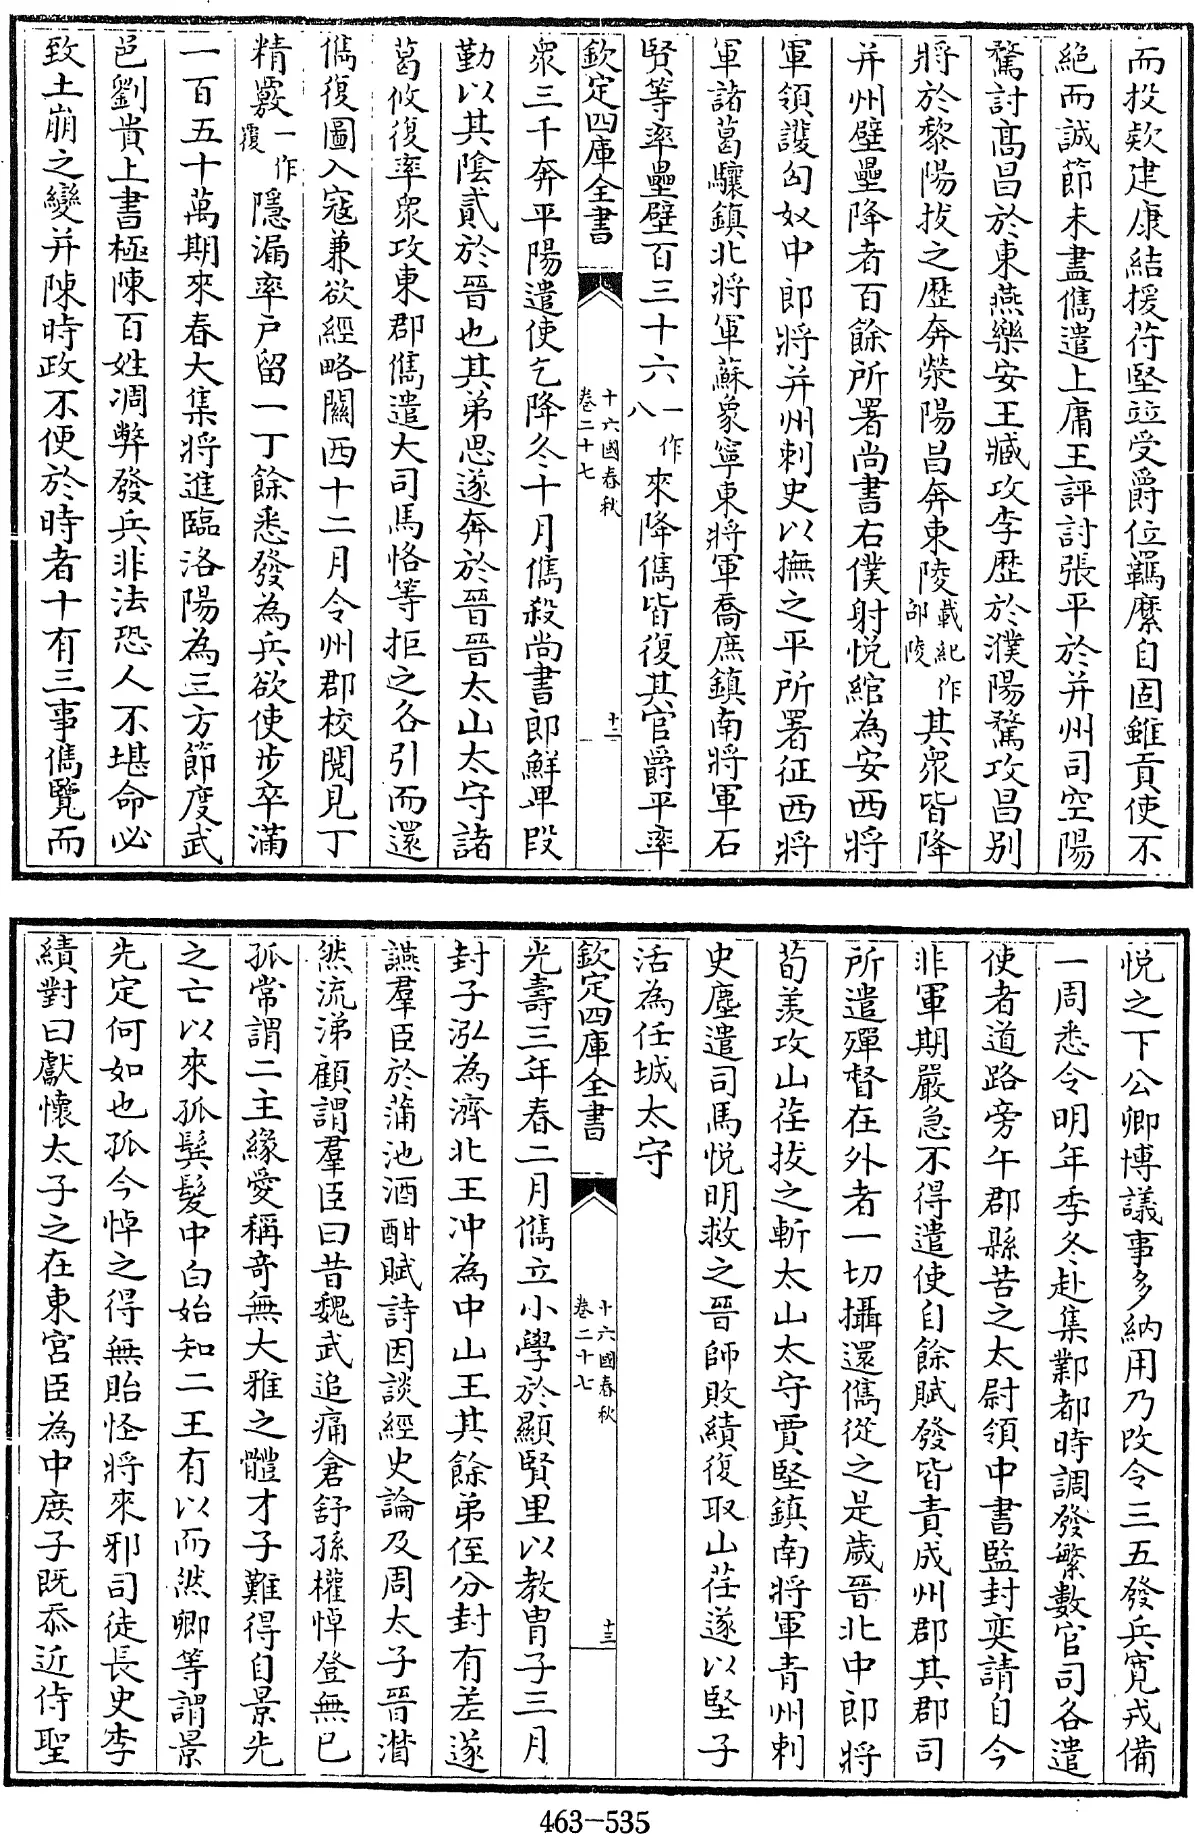 而投欵建康結援苻堅竝受爵位羈縻自固雖貢使不
絕而誠節未盡儁遣上庸王評討張平於并州司空陽
騖討髙昌於東燕樂安王臧攻李歴於濮陽騖攻昌别
將於黎陽抜之歴奔滎陽昌奔東陵載紀作邵陵其衆皆降
并州壁壘降者百餘所署尚書右僕射悦綰為安西將
軍領護匈奴中郎將并州刺史以撫之平所署征西將
軍諸葛驤鎮北將軍蘇象寧東將軍喬庶鎮南將軍石
賢等率壘壁百三十六一作八來降儁皆復其官爵平率
欽定四庫全書
十六國春秋
卷二十七
十二
衆三千奔平陽遣使乞降冬十月儁殺尚書郎鮮卑段
勤以其陰貳於晉也其弟思遂奔於晉晉太山太守諸
葛攸復率衆攻東郡儁遣大司馬恪等拒之各引而還
儁復圖入寇兼欲經略關西十二月令州郡校閲見丁
精覈一作覆隱漏率戸留一丁餘悉發為兵欲使歩卒滿
一百五十萬期來春大集將進臨洛陽為三方節度武
邑劉貴上書極陳百姓凋弊發兵非法恐人不堪命必
致土崩之變并陳時政不便於時者十有三事儁覽而
悦之下公卿博議事多納用乃改令三五發兵寛戎備
一周悉令明年季冬赴集鄴都時調發繁數官司各遣
使者道路旁午郡縣苦之太尉領中書監封奕請自今
非軍期嚴急不得遣使自餘賦發皆責成州郡其郡司
所遣殫督在外者一切攝還儁從之是歲晉北中郎將
荀羨攻山茌拔之斬太山太守賈堅鎮南將軍青州刺
史塵遣司馬悦明救之晉師敗績復取山茌遂以堅子
活為任城太守
欽定四庫全書
十六國春秋
卷二十七
十三
光壽三年春二月儁立小學於顯賢里以教胄子三月
封子泓為濟北王沖為中山王其餘弟侄分封有差遂
讌羣臣於蒲池酒酣賦詩因談經史論及周太子晉濳
然流涕顧謂羣臣曰昔魏武追痛倉舒孫權悼登無已
孤常謂二主緣愛稱奇無大雅之體才子難得自景先
之亡以來孤鬂髮中白始知二王有以而然卿等謂景
先定何如也孤今悼之得無貽怪將來邪司徒長史李
績對曰獻懷太子之在東宫臣為中庶子既忝近侍聖
463-535